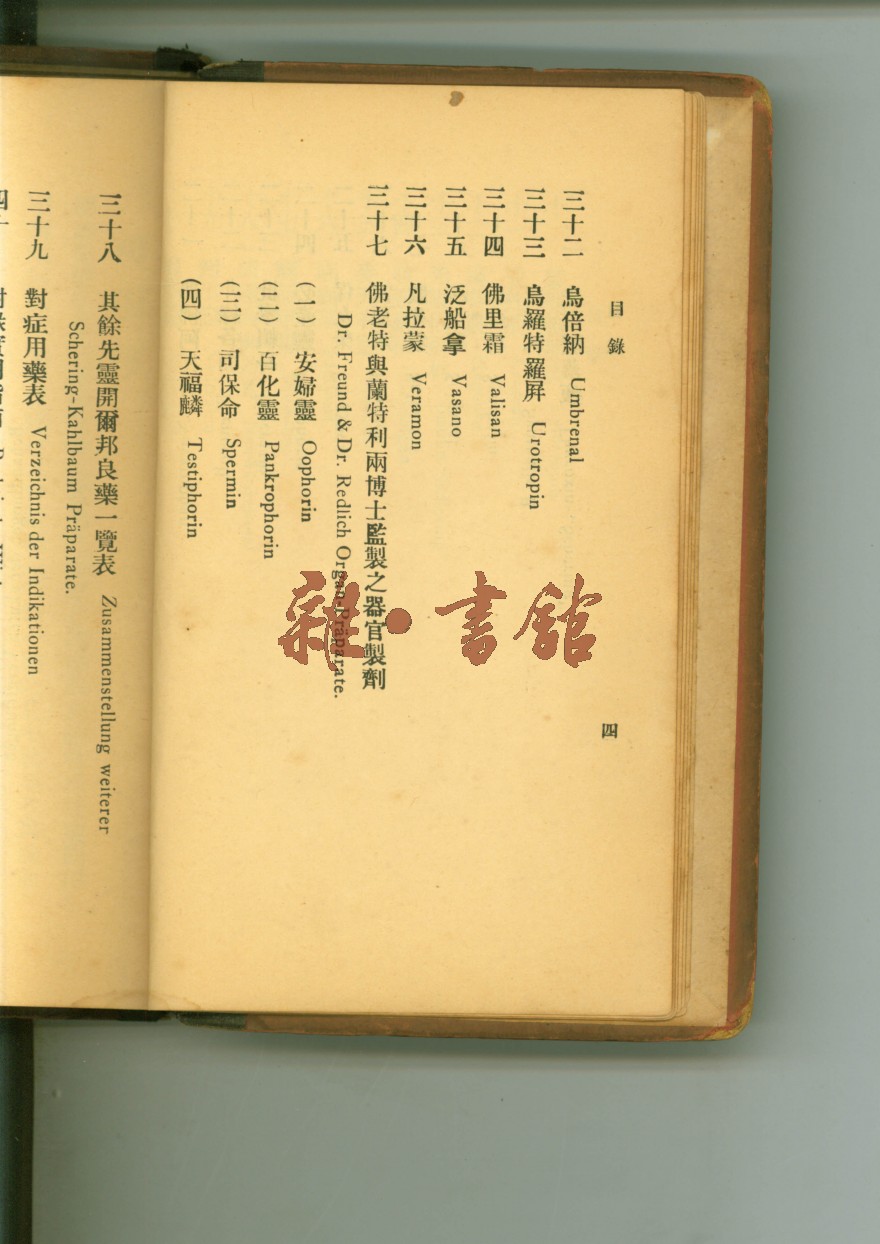 目錄
四
三十二 烏倍納 Umbrenal
三十三 烏羅特羅屏 Urotropin
三十四 佛里霜 Valisan
三十五 泛船拿 Vasano
三十六 凡拉蒙 Veramon
三十七 佛老特與蘭特利兩博士監製之器官製劑
Dr. Freund & Dr. Redlich Organ-Präparate.
(一) 安婦靈 Oophorin
(二) 百化靈 Pankrophorin
(三) 司保命 Spermin
(四) 天福麟 Testiphorin
三十八 其餘先靈開爾邦良藥一覽表 Zusammenstellung weiterer
Schering-Kahlbaum Präparate.
三十九 對症用藥表 Verzeichnis der Indikationen
雜·書館